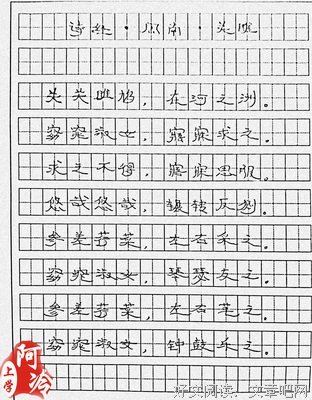 诗经·周南·关雎
关关雎鸠，在河之洲。
窈窕淑女，寤寐求之。
求之不得，寤寐思服。
悠哉悠哉，辗转反侧。
参差荇菜，左右采之。
窈窕淑女，琴瑟友之。
参差荇菜，左右芼之。
窈窕淑女，钟鼓乐之。
阿冷
上学
好文阅读，文章吧网